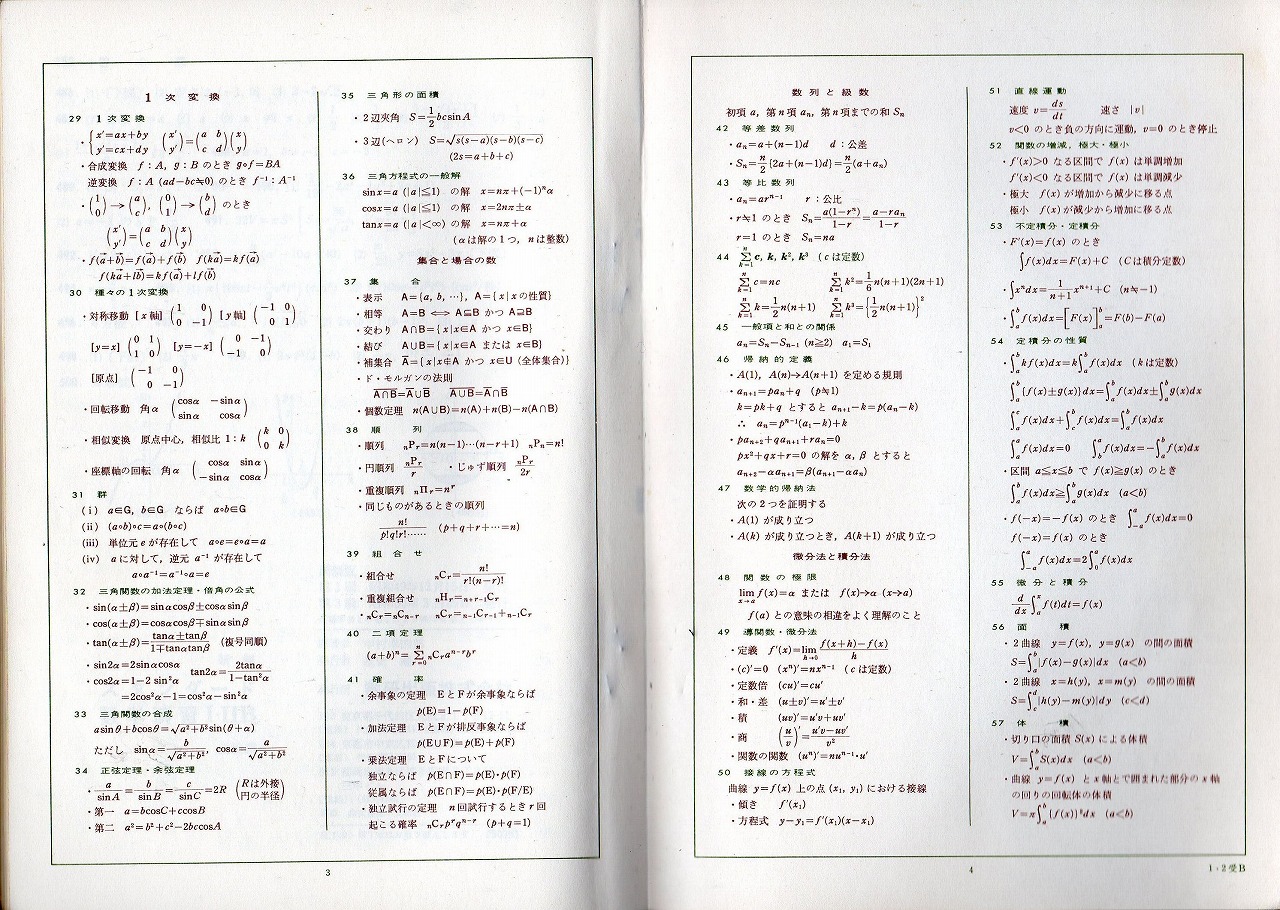 1 次 変 換
29 1 次 変 換
・{x'=ax+by (x') = (a b)(x)
 {y'=cx+dy (y') (c d)(y)
・合成変換 f：A, g：B のとき g∘f=BA
逆変換 f：A (ad−bc≒0) のとき f⁻¹：A⁻¹
・(1)→(a), (0)→(b) のとき
 (0) (c) (1) (d)
(x') = (a b)(x)
(y') (c d)(y)
・f(a⃗+b⃗)=f(a⃗)+f(b⃗) f(ka⃗)=kf(a⃗)
f(ka⃗+lb⃗)=kf(a⃗)+lf(b⃗)
30 種々の1次変換
・対称移動 [x軸] (1 0) [y軸] (−1 0)
 (0 −1) (0 1)
[y=x] (0 1) [y=−x] (0 −1)
 (1 0) (−1 0)
[原点] (−1 0)
 (0 −1)
・回転移動 角α (cosα −sinα)
 (sinα cosα)
・相似変換 原点中心, 相似比 1：k (k 0)
 (0 k)
・座標軸の回転 角α (cosα sinα)
 (−sinα cosα)
31 群
(i) a∈G, b∈G ならば a∘b∈G
(ii) (a∘b)∘c=a∘(b∘c)
(iii) 単位元 e が存在して a∘e=e∘a=a
(iv) a に対して, 逆元 a⁻¹ が存在して
a∘a⁻¹=a⁻¹∘a=e
32 三角関数の加法定理・倍角の公式
・sin(α±β)=sinαcosβ±cosαsinβ
・cos(α±β)=cosαcosβ∓sinαsinβ
・tan(α±β)=(tanα±tanβ)/(1∓tanαtanβ) (複号同順)
・sin2α=2sinαcosα tan2α=2tanα/(1−tan²α)
・cos2α=1−2 sin²α
=2cos²α−1=cos²α−sin²α
33 三角関数の合成
asinθ+bcosθ=√(a²+b²)sin(θ+α)
ただし sinα=b/√(a²+b²), cosα=a/√(a²+b²)
34 正弦定理・余弦定理
・a/sinA=b/sinB=c/sinC=2R (Rは外接円の半径)
・第一 a=bcosC+ccosB
・第二 a²=b²+c²−2bccosA
35 三角形の面積
・2辺夾角 S=1/2 bcsinA
・3辺(ヘロン) S=√(s(s−a)(s−b)(s−c))
(2s=a+b+c)
36 三角方程式の一般解
sinx=a (|a|≦1) の解 x=nπ+(−1)ⁿα
cosx=a (|a|≦1) の解 x=2nπ±α
tanx=a (|a|<∞) の解 x=nπ+α
(αは解の1つ, nは整数)
集合と場合の数
37 集 合
・表示 A={a, b, …}, A={x|xの性質}
・相等 A=B ⟺ A⊆B かつ A⊇B
・交わり A∩B={x|x∈A かつ x∈B}
・結び A∪B={x|x∈A または x∈B}
・補集合 A̅={x|x∉A かつ x∈U (全体集合)}
・ド・モルガンの法則
\overline{A∩B}=A̅∪B̅ \overline{A∪B}=A̅∩B̅
・個数定理 n(A∪B)=n(A)+n(B)−n(A∩B)
38 順 列
・順列 ₙPᵣ=n(n−1)…(n−r+1) ₙPₙ=n!
・円順列 ₙPᵣ/r ・じゅず順列 ₙPᵣ/2r
・重複順列 ₙΠᵣ=nʳ
・同じものがあるときの順列
n!/(p!q!r!……) (p+q+r+…=n)
39 組 合 せ
・組合せ ₙCᵣ=n!/(r!(n−r)!)
・重複組合せ ₙHᵣ=ₙ₊ᵣ₋₁Cᵣ
・ₙCᵣ=ₙCₙ₋ᵣ ₙCᵣ=ₙ₋₁Cᵣ₋₁+ₙ₋₁Cᵣ
40 二 項 定 理
(a+b)ⁿ=Σ_{r=0}^{n} ₙCᵣaⁿ⁻ʳbʳ
41 確 率
・余事象の定理 EとFが余事象ならば
p(E)=1−p(F)
・加法定理 EとFが排反事象ならば
p(E∪F)=p(E)+p(F)
・乗法定理 EとFについて
独立ならば p(E∩F)=p(E)・p(F)
従属ならば p(E∩F)=p(E)・p(F/E)
・独立試行の定理 n回試行するときr回
起こる確率 ₙCᵣpʳqⁿ⁻ʳ (p+q=1)
3
数 列 と 級 数
初項 a, 第n項 aₙ, 第n項までの和 Sₙ
42 等 差 数 列
・aₙ=a+(n−1)d d：公差
・Sₙ=n/2{2a+(n−1)d}=n/2(a+aₙ)
43 等 比 数 列
・aₙ=arⁿ⁻¹ r：公比
・r≒1 のとき Sₙ=a(1−rⁿ)/(1−r)=(a−raₙ)/(1−r)
r=1 のとき Sₙ=na
44 Σ_{k=1}^{n} c, k, k², k³ (cは定数)
Σ_{k=1}^{n} c=nc Σ_{k=1}^{n} k²=1/6 n(n+1)(2n+1)
Σ_{k=1}^{n} k=1/2 n(n+1) Σ_{k=1}^{n} k³={1/2 n(n+1)}²
45 一般項と和との関係
aₙ=Sₙ−Sₙ₋₁ (n≧2) a₁=S₁
46 帰 納 的 定 義
・A(1), A(n)→A(n+1) を定める規則
・aₙ₊₁=paₙ+q (p≒1)
k=pk+q とすると aₙ₊₁−k=p(aₙ−k)
∴ aₙ=pⁿ⁻¹(a₁−k)+k
・paₙ₊₂+qaₙ₊₁+raₙ=0
px²+qx+r=0 の解を α, β とすると
aₙ₊₂−αaₙ₊₁=β(aₙ₊₁−αaₙ)
47 数 学 的 帰 納 法
次の2つを証明する
・A(1) が成り立つ
・A(k) が成り立つとき, A(k+1) が成り立つ
微分法と積分法
48 関 数 の 極 限
lim_{x→a} f(x)=α または f(x)→α (x→a)
f(a) との意味の相違をよく理解のこと
49 導関数・微分法
・定義 f'(x)=lim_{h→0} (f(x+h)−f(x))/h
・(c)'=0 (xⁿ)'=nxⁿ⁻¹ (cは定数)
・定数倍 (cu)'=cu'
・和・差 (u±v)'=u'±v'
・積 (uv)'=u'v+uv'
・商 (u/v)'=(u'v−uv')/v²
・関数の関数 (uⁿ)'=nuⁿ⁻¹・u'
50 接線の方程式
曲線 y=f(x) 上の点 (x₁, y₁) における接線
・傾き f'(x₁)
・方程式 y−y₁=f'(x₁)(x−x₁)
51 直 線 運 動
速度 v=ds/dt 速さ |v|
v<0 のとき負の方向に運動, v=0 のとき停止
52 関数の増減, 極大・極小
・f'(x)>0 なる区間で f(x) は単調増加
f'(x)<0 なる区間で f(x) は単調減少
・極大 f(x)が増加から減少に移る点
極小 f(x)が減少から増加に移る点
53 不定積分・定積分
・F'(x)=f(x) のとき
∫f(x)dx=F(x)+C (Cは積分定数)
・∫xⁿdx=1/(n+1) xⁿ⁺¹+C (n≒−1)
・∫ₐᵇf(x)dx=[F(x)]ₐᵇ=F(b)−F(a)
54 定積分の性質
・∫ₐᵇkf(x)dx=k∫ₐᵇf(x)dx (kは定数)
∫ₐᵇ{f(x)±g(x)}dx=∫ₐᵇf(x)dx±∫ₐᵇg(x)dx
∫ₐᶜf(x)dx+∫_c^b f(x)dx=∫ₐᵇf(x)dx
∫ₐᵃf(x)dx=0 ∫ₐᵇf(x)dx=−∫_b^a f(x)dx
・区間 a≦x≦b で f(x)≧g(x) のとき
∫ₐᵇf(x)dx≧∫ₐᵇg(x)dx (a<b)
・f(−x)=−f(x) のとき ∫₋ₐᵃf(x)dx=0
f(−x)=f(x) のとき
∫₋ₐᵃf(x)dx=2∫₀ᵃf(x)dx
55 微 分 と 積 分
d/dx∫ₐˣf(t)dt=f(x)
56 面 積
・2曲線 y=f(x), y=g(x) の間の面積
S=∫ₐᵇ|f(x)−g(x)|dx (a<b)
・2曲線 x=h(y), x=m(y) の間の面積
S=∫_c^d|h(y)−m(y)|dy (c<d)
57 体 積
・切り口の面積 S(x) による体積
V=∫ₐᵇS(x)dx (a<b)
・曲線 y=f(x) とx軸とで囲まれた部分のx軸
の回りの回転体の体積
V=π∫ₐᵇ{f(x)}²dx (a<b)
4
1・2受B